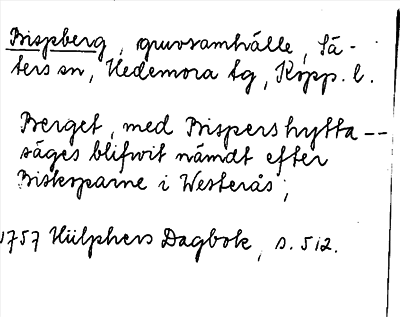 Bispberg, gruvsamhälle, Sä-
ters sn, Hedemora tg, Kopp. l.
Berget, med Bispershytta --
säges blifwit nämdt efter
Biskoparne i Westerås;
1757 Hülphers Dagbok, s. 512.